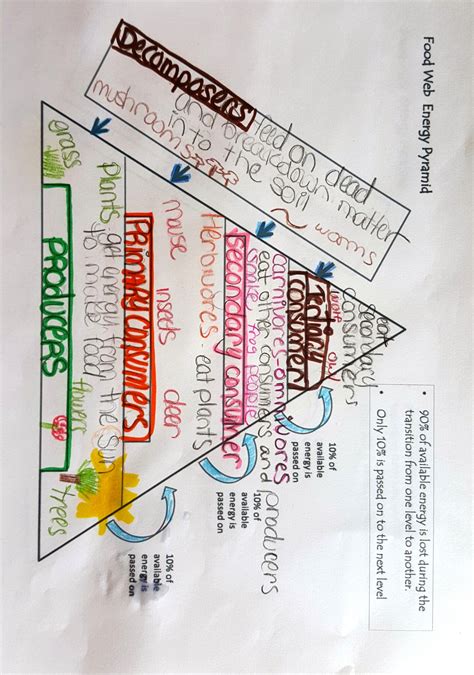 Food Web Energy Pyramid
• 90% of available energy is lost during the
transition from one level to another.
• Only 10% is passed on to the next level
Decomposers feed on dead
and breakdown matter
in to the soil
mushrooms
worms
eat
secondary
consumers
owl
Tertiary
consumer
10% of
available
energy is
passed on
Carnivores-omnivores
eat other consumers and producers
snake frog people
Secondary consumer
10% of
available
energy is
passed on
Herbivores - eat plants
mouse insects deer
PRimary consumers
10% of
available
energy is
passed on
plants get energy from the sun
to make food
grass
flowers
trees
PRODUCERS